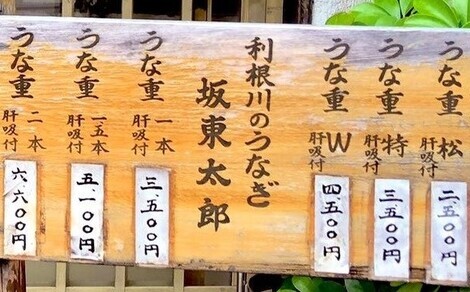 うな重 松 肝吸付
二、五〇〇円
うな重 特 肝吸付
三、五〇〇円
うな重 W 肝吸付
四、五〇〇円
利根川のうなぎ
坂東太郎
うな重 一本 肝吸付
三、五〇〇円
うな重 一、五本 肝吸付
五、一〇〇円
うな重 二本 肝吸付
六、六〇〇円